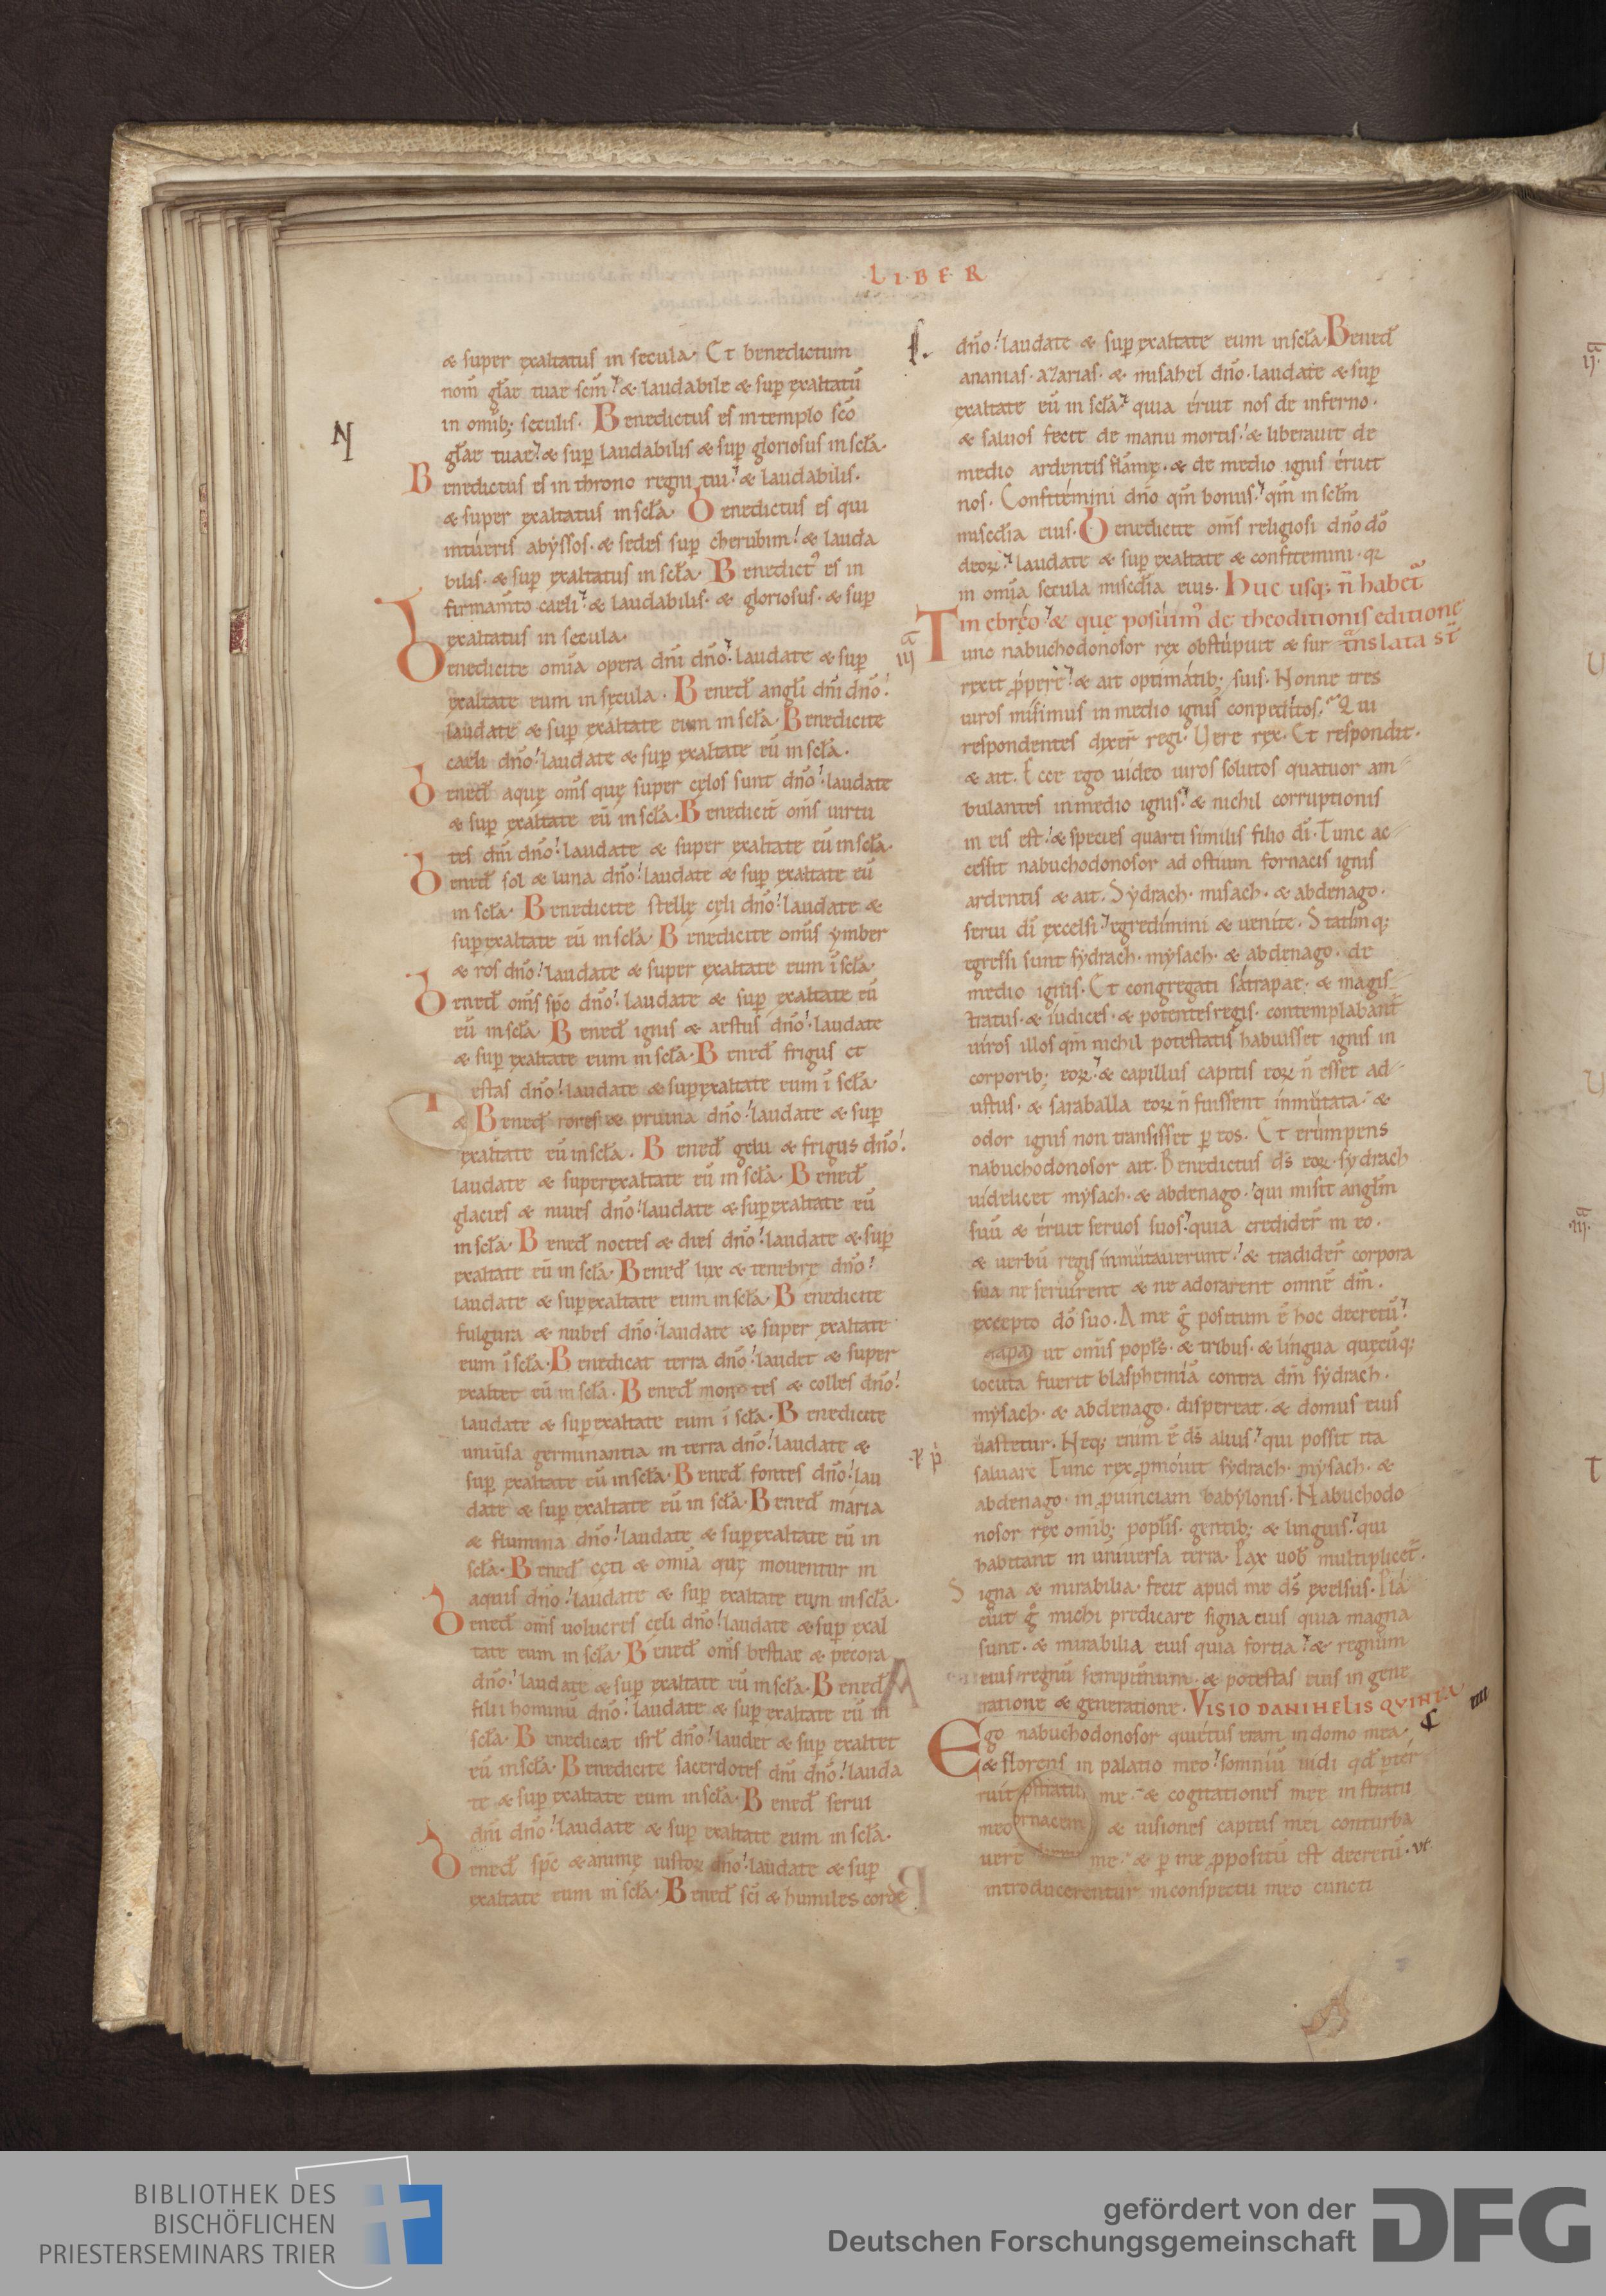 LIBER
& super exaltatus in secula. Et benedictum
nom̅ gl̅ae tuae sc̅m & laudabile & sup̲ exaltatu̅
in om̅ib; seculis. Benedictus es in templo sc̅o
gl̅ae tuae & sup̲ laudabilis & sup̲ gloriosus in scl̅a.
Benedictus es in throno regni tui & laudabilis.
& super exaltatus in scl̅a. Benedictus es qui
intueris abyssos. & sedes sup̲ cherubim & lauda
bilis. & sup̲ exaltatus in scl̅a. Benedict᾽ es in
firmam̅to caeli & laudabilis. & gloriosus. & sup̲
exaltatus in secula.
Benedicite omi̅a opera dn̅i dn̅o laudate & sup̲
exaltate eum in secula. Bened̅ angl̅i dn̅i dn̅o
laudate & sup̲ exaltate eum in scl̅a. Benedicite
caeli dn̅o laudate & sup̲ exaltate eu̅ in scl̅a.
Bened̅ aquę om̅s quę super cęlos sunt dn̅o laudate
& sup̲ exaltate eu̅ in scl̅a. Benedicit̅ om̅s uirtu
tes dn̅i dn̅o laudate & super exaltate eu̅ in scl̅a.
Bened̅ sol & luna dn̅o laudate & sup̲ exaltate eu̅
in scl̅a. Benedicite stellę cęli dn̅o laudate &
sup̲exaltate eu̅ in scl̅a. Benedicite omi̅s ymber
& ros dn̅o laudate & super exaltate eum i̅ scl̅a.
Bened̅ om̅s sp̅c dn̅o laudate & sup̲ exaltate eu̅
eu̅ in scl̅a. Bened̅ ignis & aestus dn̅o laudate
& sup̲ exaltate eum in scl̅a. Bened̅ frigus et
estas dn̅o laudate & sup̲exaltate eum i̅ scl̅a.
& Bened̅ rores & pruina dn̅o laudate & sup̲
exaltate eu̅ in scl̅a. Bened̅ gelu & frigus dn̅o
laudate & superexaltate eu̅ in scl̅a. Bened̅
glacies & niues dn̅o laudate & sup̲exaltate eu̅
in scl̅a. Bened̅ noctes & dies dn̅o laudate & sup̲
exaltate eu̅ in scl̅a. Bened̅ lux & tenebrę dn̅o
laudate & sup̲exaltate eum in scl̅a. Benedicite
fulgura & nubes dn̅o laudate & super exaltate
eum i̅ scl̅a. Benedicat terra dn̅o laudet & super
exaltet eu̅ in scl̅a. Bened̅ montes & colles dn̅o
laudate & sup̲exaltate eum i̅ scl̅a. Benedicite
uniu̅sa germinantia in terra dn̅o laudate &
sup̲ exaltate eu̅ in scl̅a. Bened̅ fontes dn̅o lau
date & sup̲ exaltate eu̅ in scl̅a. Bened̅ maria
& flumina dn̅o laudate & sup̲exaltate eu̅ in
scl̅a. Bened̅ cęti & omi̅a quę mouentur in
aquis dn̅o laudate & sup̲ exaltate eum in scl̅a.
Bened̅ om̅s uolucres cęli dn̅o laudate & sup̲ exal
tate eum in scl̅a. Bened̅ om̅s bestiae & pecora
dn̅o laudate & sup̲ exaltate eu̅ in scl̅a. Bened̅
filii hominu̅ dn̅o laudate & sup̲ exaltate eu̅ in
scl̅a. Benedicat isrl̅ dn̅o laudet & sup̲ exaltet
eu̅ in scl̅a. Benedicite sacerdotes dn̅i dn̅o lauda
te & sup̲ exaltate eum in scl̅a. Bened̅ serui
dn̅i dn̅o laudate & sup̲ exaltate eum in scl̅a.
Bened̅ sp̅c & animę iustoꝝ dn̅o laudate & sup̲
exaltate eum in scl̅a. Bened̅ sc̅i & humiles corde
dn̅o laudate & sup̲ exaltate eum in scl̅a Bened̅
ananias. azarias. & misahel dn̅o. laudate & sup̲
exaltate eu̅ in scl̅a quia eruit nos de inferno.
& saluos fecit de manu mortis & liberauit de
medio ardentis fla̅mę. & de medio ignis eruit
nos. Confitemini dn̅o qm̅ bonus qm̅ in scl̅m
miscd̅ia eius. Benedicite om̅s religiosi dn̅o do̅
deoꝝ laudate & sup̲ exaltate & confitemini. qꝛ
in omi̅a secula miscd̅ia eius. Huc usq; n̅ habet̅
in ebręo & quę posuim᾽ de theoditionis editione
Tunc nabuchodonosor rex obstupuit & sur translata st̅
rexit p̲pere & ait optimatib; suis. Nonne tres
uiros misimus in medio ignis conpeditos. Qui
respondentes dixer̅ regi. Vere rex. Et respondit.
& ait. Ecce ego uideo uiros solutos quatuor am
bulantes in medio ignis & nichil corruptionis
in eis est & species quarti similis filio di̅. Tunc ac
cessit nabuchodonosor ad ostium fornacis ignis
ardentis & ait. Sydrach. misach. & abdenago.
serui di̅ excelsi egredimini & uenite. Statimq;
egressi sunt sydrach. mysach. & abdenago. de
medio ignis. Et congregati satrapae. & magis
tratus. & iudices. & potentes regis. contemplabant̅
uiros illos qm̅ nichil potestatis habuisset ignis in
corporib; eoꝝ & capillus capitis eoꝝ n̅ esset ad
ustus. & saraballa eoꝝ n̅ fuissent inmutata. &
odor ignis non transisset p̲ eos. Et erumpens
nabuchodonosor ait. Benedictus ds̅ eoꝝ. sydrach
uidelicet mysach. & abdenago. qui misit angl̅m
suu̅ & eruit seruos suos quia credider̅ in eo.
& uerbu̅ regis inmutauerunt & tradider̅ corpora
sua ne seruirent & ne adorarent omne̅ dm̅.
excepto do̅ suo. A me g̊ positum e̅ hoc decretu̅
ut omi̅s popl̅s. & tribus. & lingua quęcu̅q;
locuta fuerit blasphemia̅ contra dm̅ sydrach.
mysach. & abdenago. dispereat. & domus eius
uastetur. Neq; enim e̅ ds̅ alius qui possit ita
saluare Tunc rex p̲mouit sydrach. mysach. &
abdenago. in p̲uinciam babylonis. Nabuchodo
nosor rex omi̅b; popl̅s. gentib; & linguis qui
habitant in uniuersa terra. Pax uob̅ multiplicet̅.
Signa & mirabilia. fecit apud me ds̅ excelsus. Pla
cuit g̊ michi predicare signa eius quia magna
sunt. & mirabilia eius quia fortia & regnum
eius regnu̅ sempit̅num. & potestas eius in gene
ratione & generatione. VISIO DANIHELIS QVINTA
Ego nabuchodonosor quietus eram in domo mea.
& florens in palatio meo somniu̅ uidi qd̅ p̲ter
ruit me & cogitationes meę in stratu
meo & uisiones capitis mei conturba
uer̅ me & p̲ me p̲positu̅ est decretu̅. ut
introducerentur in conspectu meo cuncti
BIBLIOTHEK DES
BISCHÖFLICHEN
PRIESTERSEMINARS TRIER
gefördert von der
Deutschen Forschungsgemeinschaft
DFG